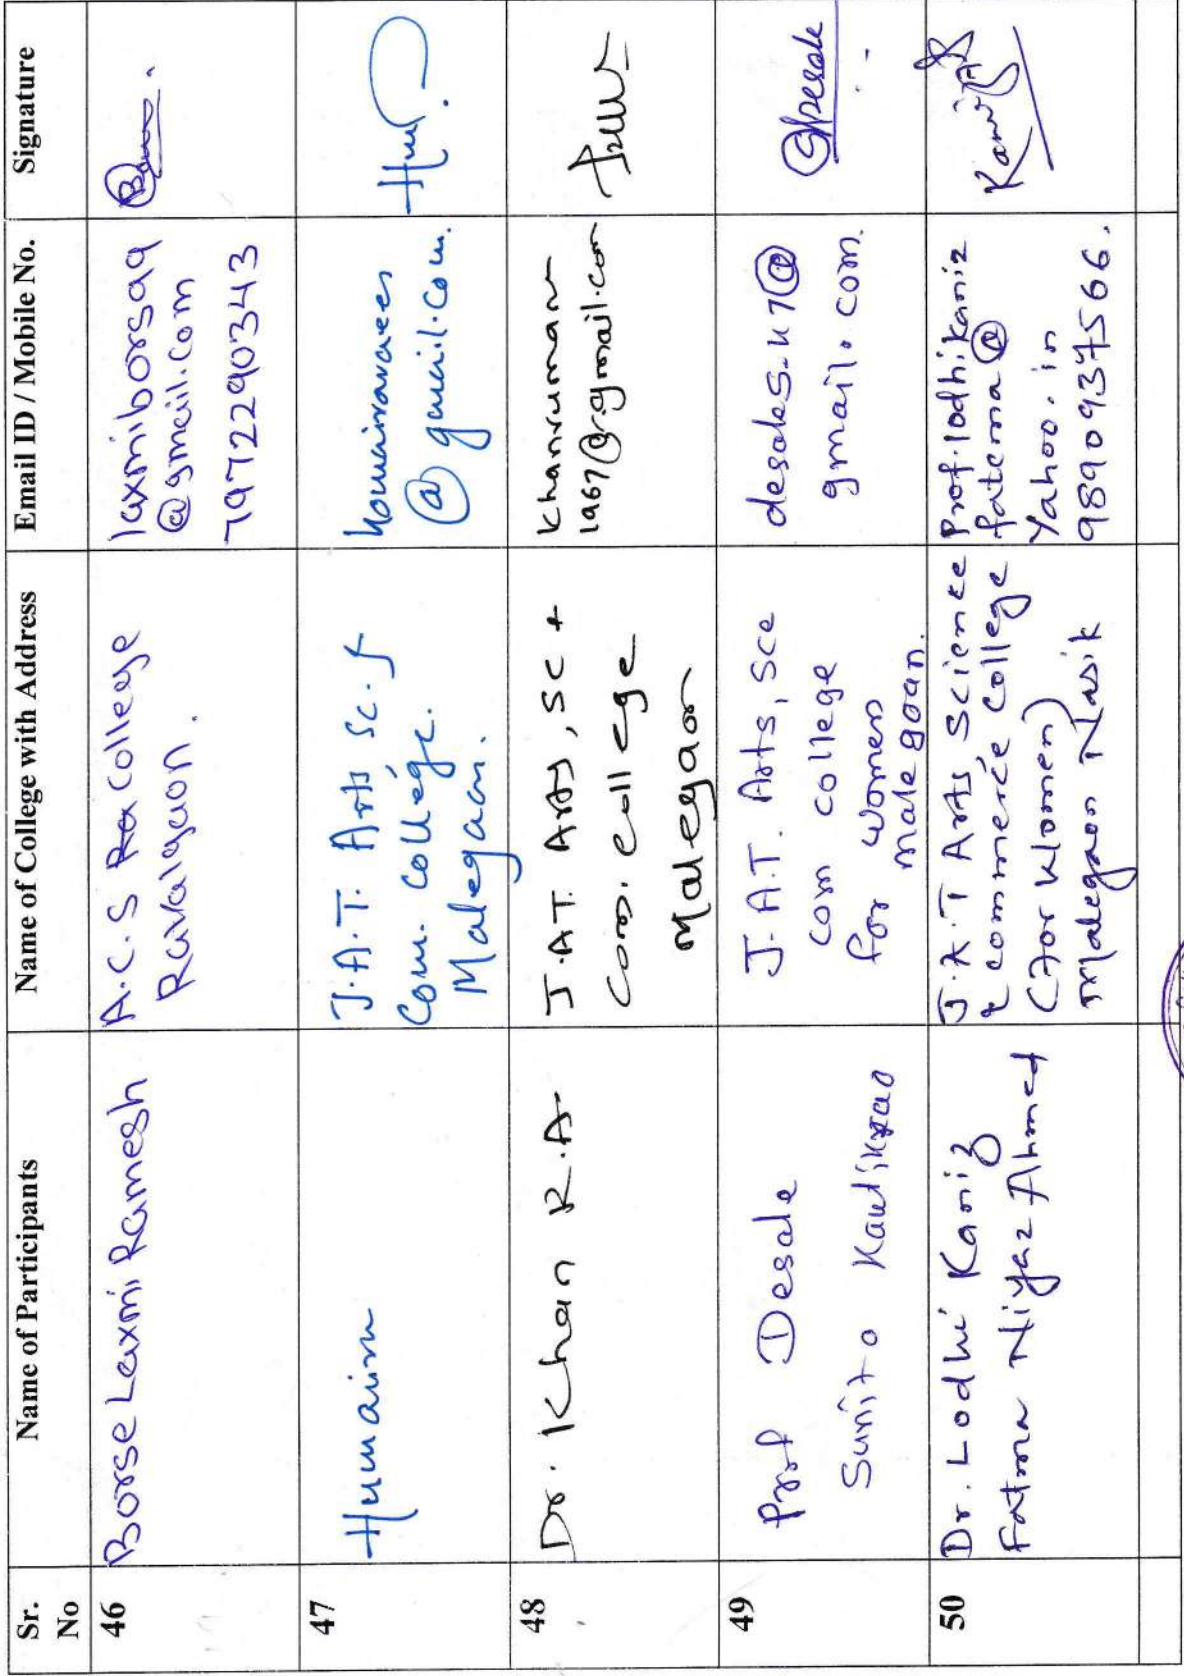 Sr. No
Name of Participants
Name of College with Address
Email ID / Mobile No.
Signature
46
Borse Laxmi Ramesh
A.C.S College
Ravalgaon.
laxmiborsaq
@gmail.com
7972290343
47
Humaira
J.A.T. Arts Sc. &
Com. College.
Malegaon.
@gmail.com.
48
Dr. Khan R.A
J.A.T. Arts, SC +
Com. college
Malegaon
Khanruman
1967@gmail.com
49
Prof Desale
Sunita Kautikrao
J.A.T. Arts, Sce
Com college
for women
malegoan.
gmail.com.
50
Dr. Lodhi Kaniz
Fatma Niyaz Ahmed
J.A.T Arts, Science
& commerce College
(For Women)
Malegaon Nasik
Prof.lodhikaniz
fatema@
Yahoo.in
9890937566.
Kaniz